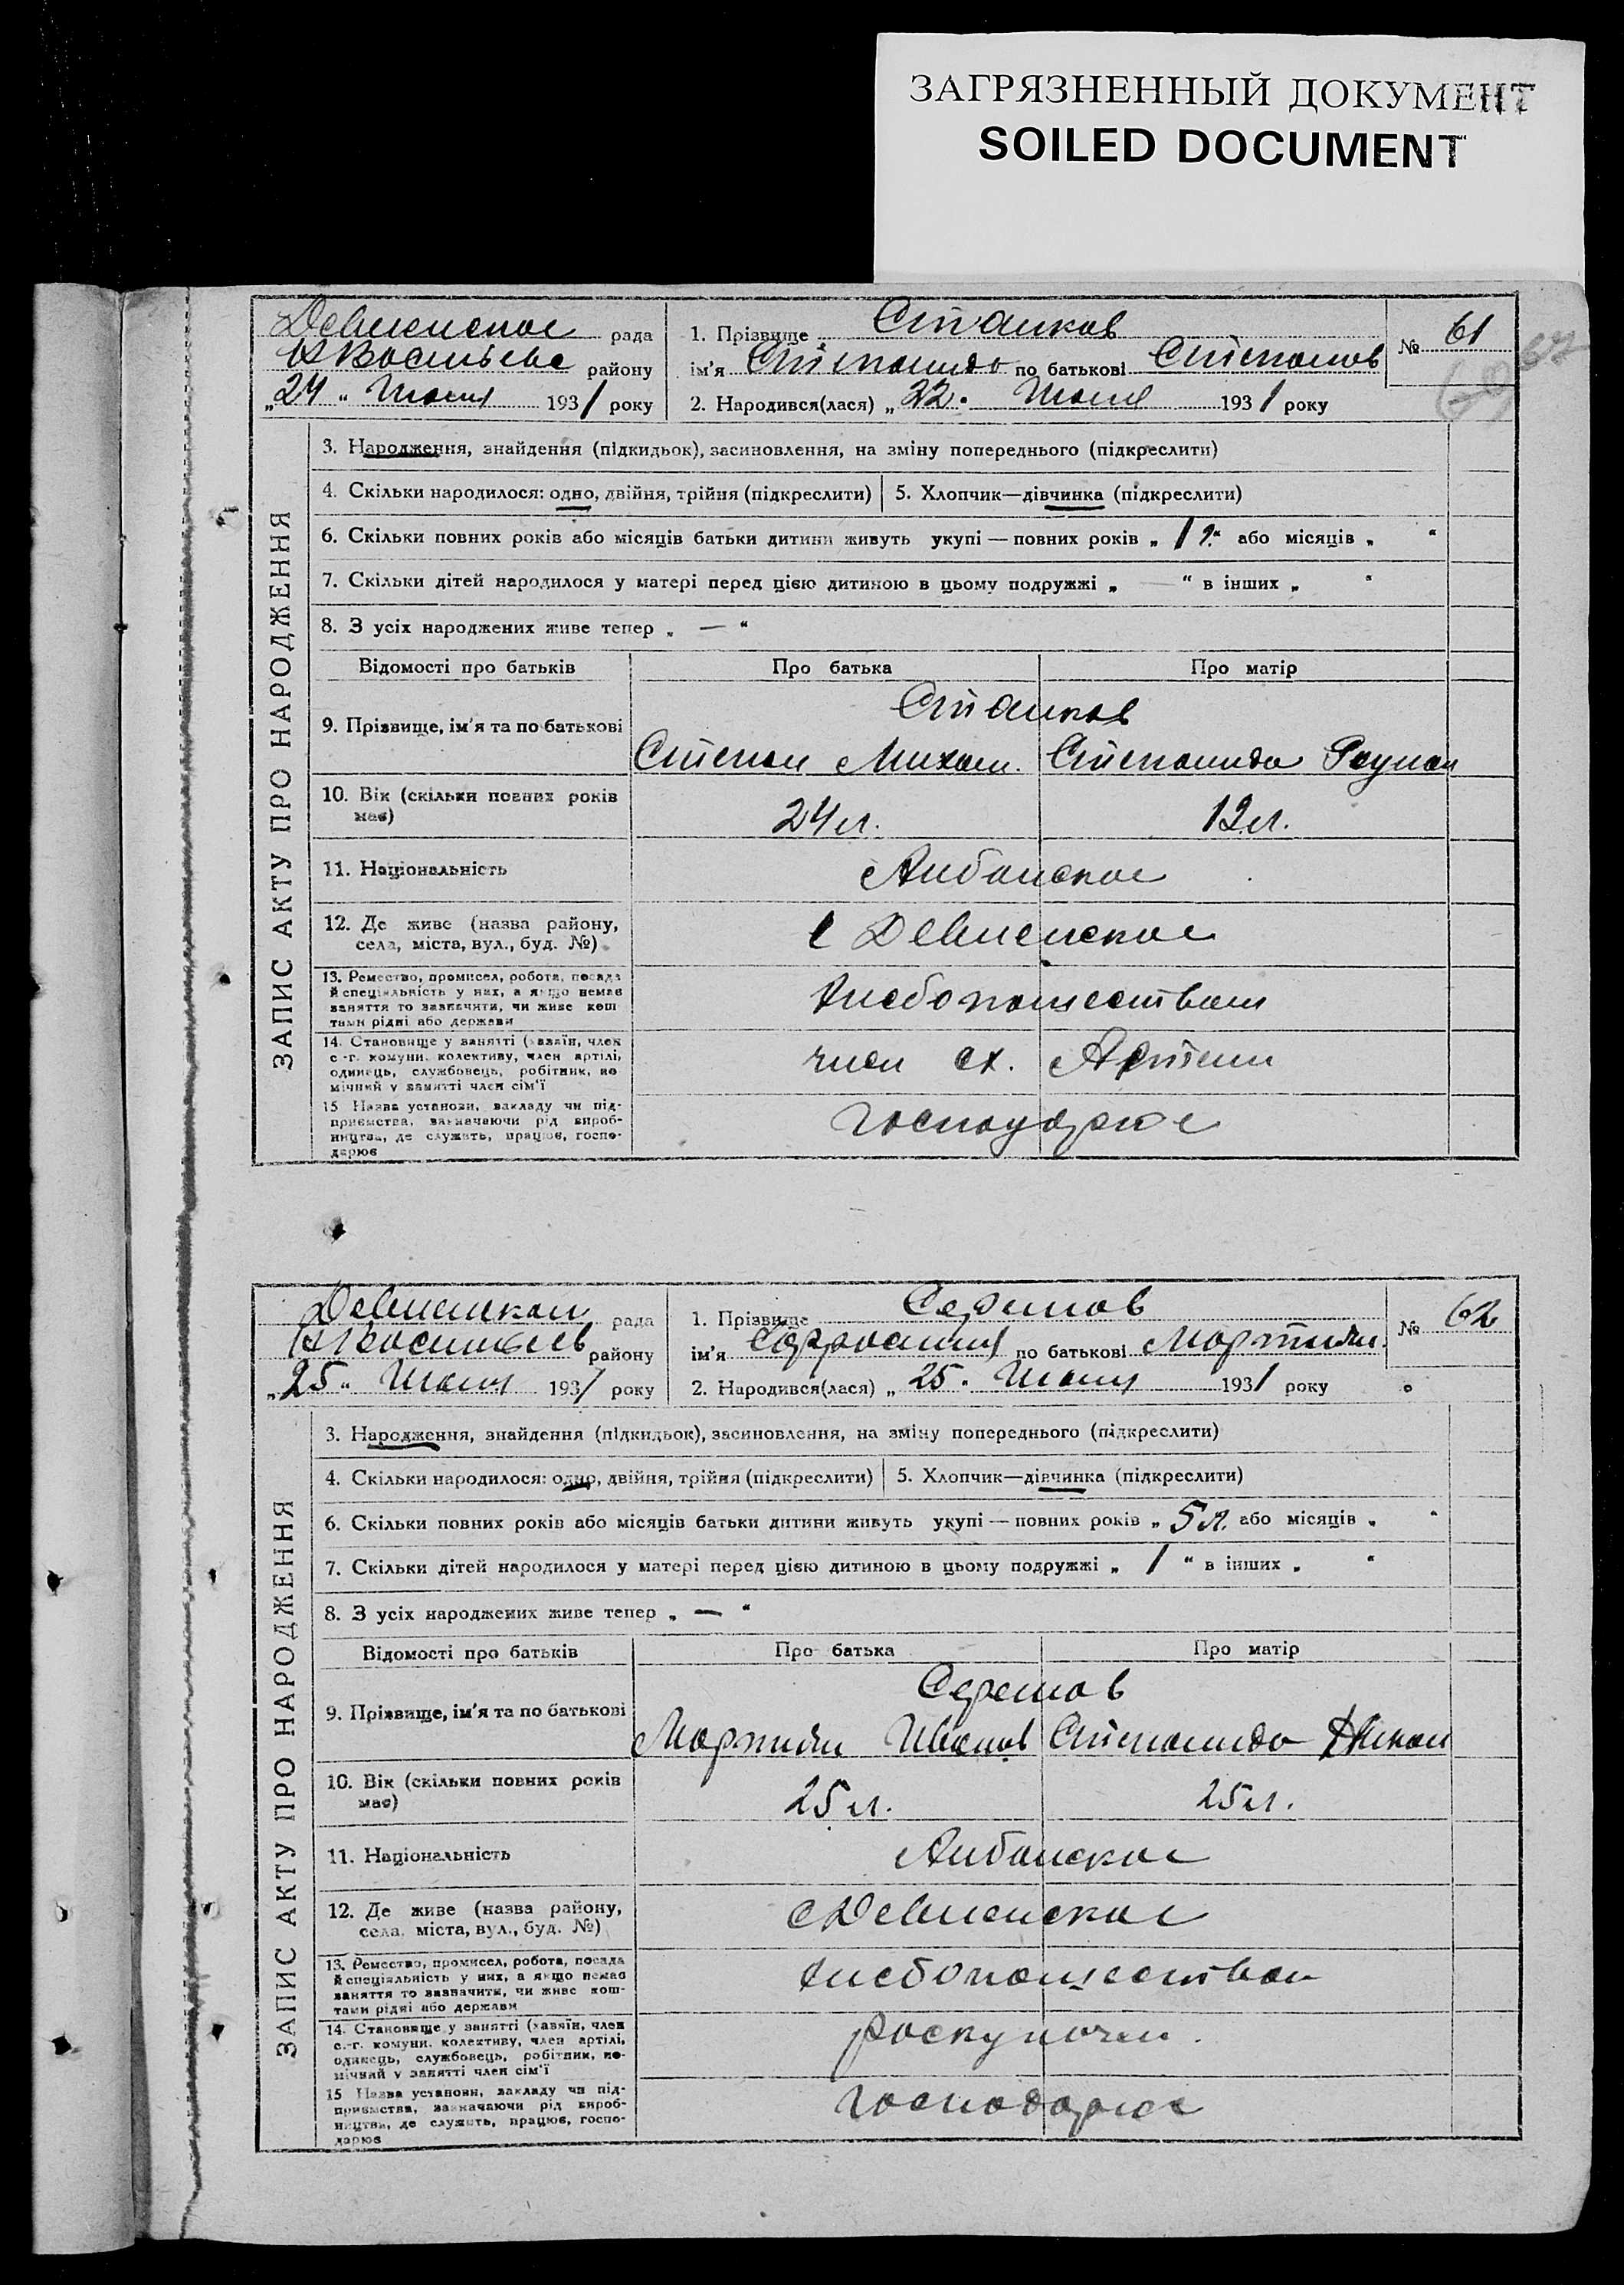 ЗАГРЯЗНЕННЫЙ ДОКУМЕНТ
SOILED DOCUMENT
Девненское рада
района району
„24“ Июня 1931 року
1. Прізвище Станков
ім'я Степанида по батькові Степанов
2. Народився(лася) „22“ Июня 1931 року
№ 61
67
ЗАПИС АКТУ ПРО НАРОДЖЕННЯ
3. Народження, знайдення (підкидьок), засиновлення, на зміну попереднього (підкреслити)
4. Скільки народилося: одно, двійня, трійня (підкреслити)
5. Хлопчик—дівчинка (підкреслити)
6. Скільки повних років або місяців батьки дитини живуть укупі — повних років „ 1 г.“ або місяців „ “
7. Скільки дітей народилося у матері перед цією дитиною в цьому подружжі „ — “ в інших „ “
8. З усіх народжених живе тепер „ — “
Відомості про батьків Про батька Про матір
9. Прізвище, ім'я та по батькові
Станков
Степан Михаил. Степанида
10. Вік (скільки повних років має)
24 л. 19 л.
11. Національність
Албанское
12. Де живе (назва району,
села, міста, вул., буд. №)
с Девненское
13. Ремество, промисел, робота, посада
й спеціяльність у них, а якщо немає
заняття то зазначити, чи живе кош
тами рідні або держави
Хлебопашеством
14. Становище у занятті (хазяїн, член
с.-г. комуни, колективу, член артілі,
одинець, службовець, робітник, по
мічний у занятті член сім'ї
член сх. Артели
15 Назва установи, закладу чи під-
приємства, зазначаючи рід вироб-
ництва, де служить, працює, госпо-
дарює
рада
району
„25“ Июня 1931 року
1. Прізвище
ім'я по батькові
2. Народився(лася) „25“ Июня 1931 року
№ 62
ЗАПИС АКТУ ПРО НАРОДЖЕННЯ
3. Народження, знайдення (підкидьок), засиновлення, на зміну попереднього (підкреслити)
4. Скільки народилося: одно, двійня, трійня (підкреслити)
5. Хлопчик—дівчинка (підкреслити)
6. Скільки повних років або місяців батьки дитини живуть укупі — повних років „ 5 л. або місяців „ “
7. Скільки дітей народилося у матері перед цією дитиною в цьому подружжі „ 1 “ в інших „ “
8. З усіх народжених живе тепер „ — “
Відомості про батьків Про батька Про матір
9. Прізвище, ім'я та по батькові
Иванов Степанида
10. Вік (скільки повних років має)
25 л. 25 л.
11. Національність
Албанское
12. Де живе (назва району,
села, міста, вул., буд. №)
с Девненское
13. Ремество, промисел, робота, посада
й спеціяльність у них, а якщо немає
заняття то зазначити, чи живе кош-
тами рідні або держави
Хлебопашеством
14. Становище у занятті (хазяїн, член
с.-г. комуни, колективу, член артілі,
одинець, службовець, робітник, по-
мічний у занятті член сім'ї
15 Назва установи, закладу чи під-
приємства, зазначаючи рід вироб-
ництва, де служить, працює, госпо-
дарює
Господарює